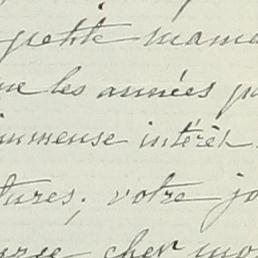 petite mama
ue les années p
immense intérêt
tures, votre jo
cher mo